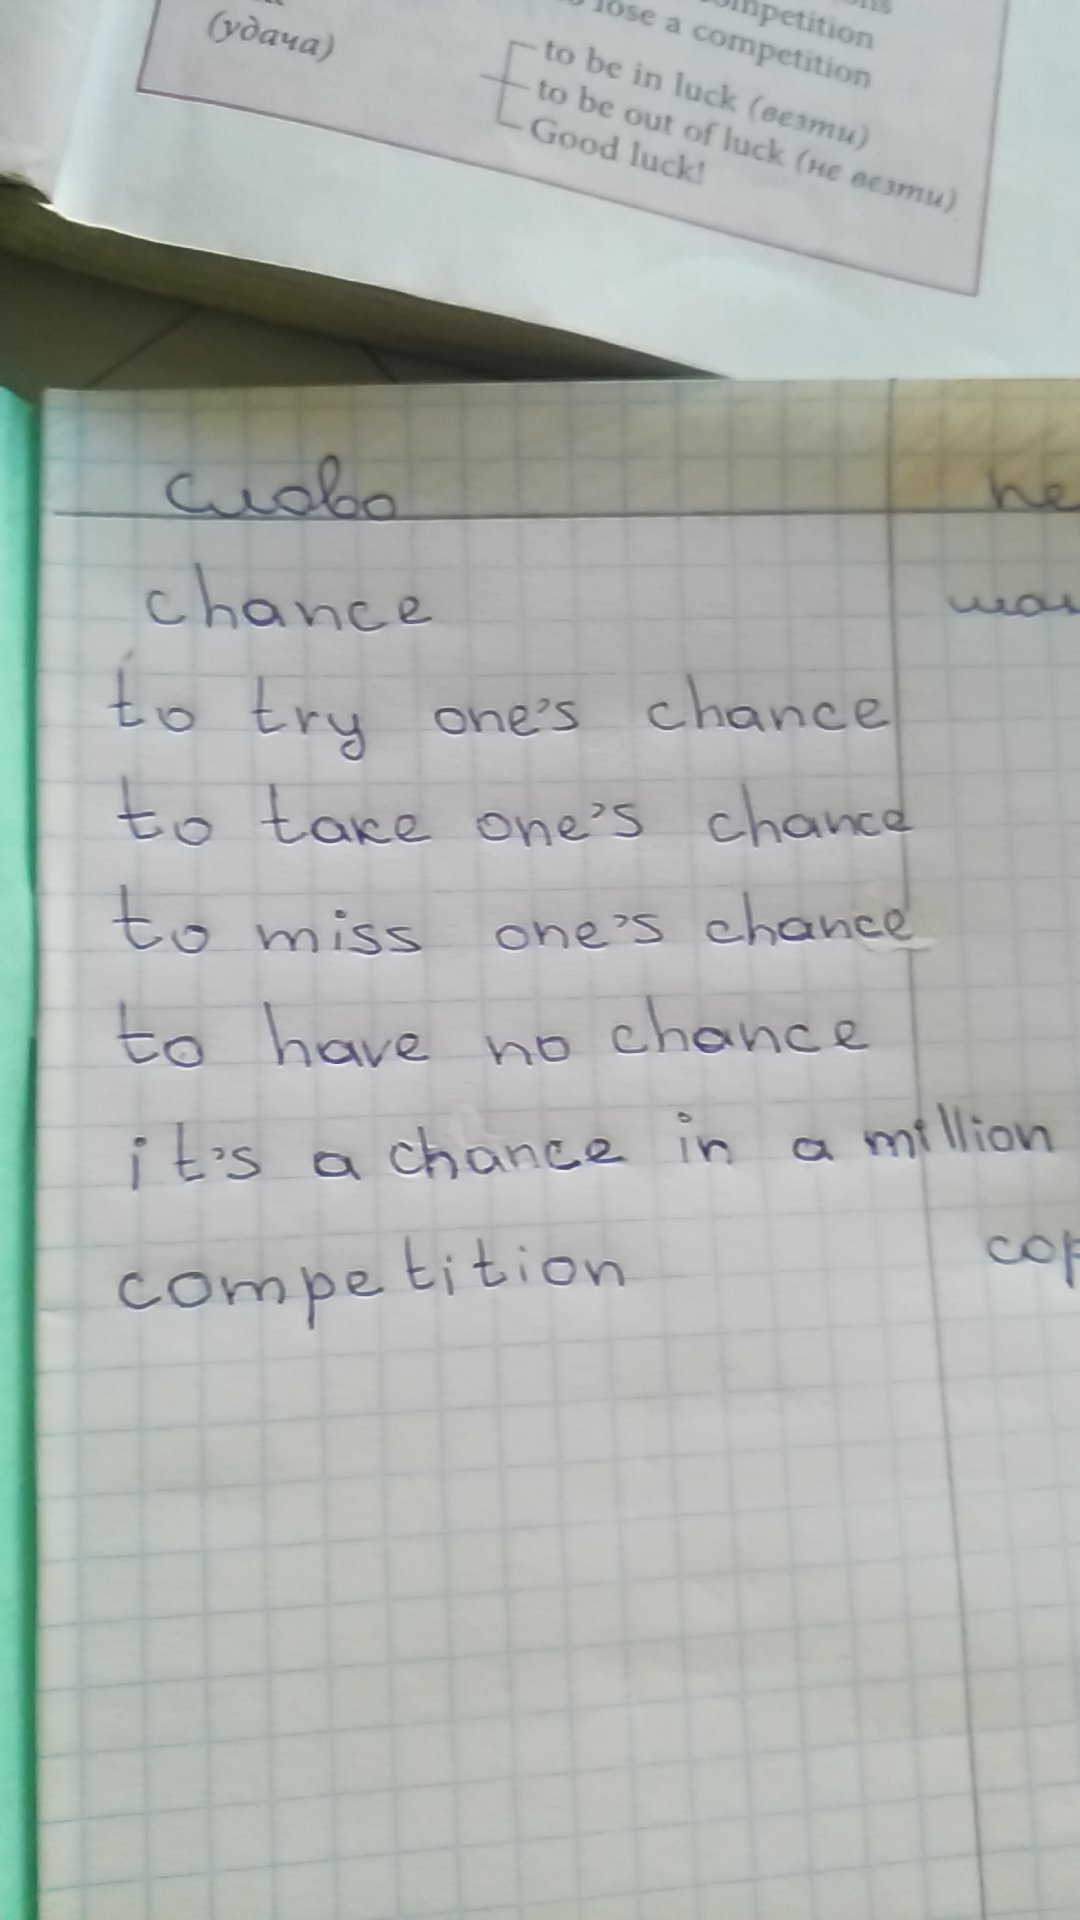 (удача)
competition
lose a competition
to be in luck (везти)
to be out of luck (не везти)
Good luck!
слово
chance
to try one's chance
to take one's chance
to miss one's chance
to have no chance
it's a chance in a million
competition